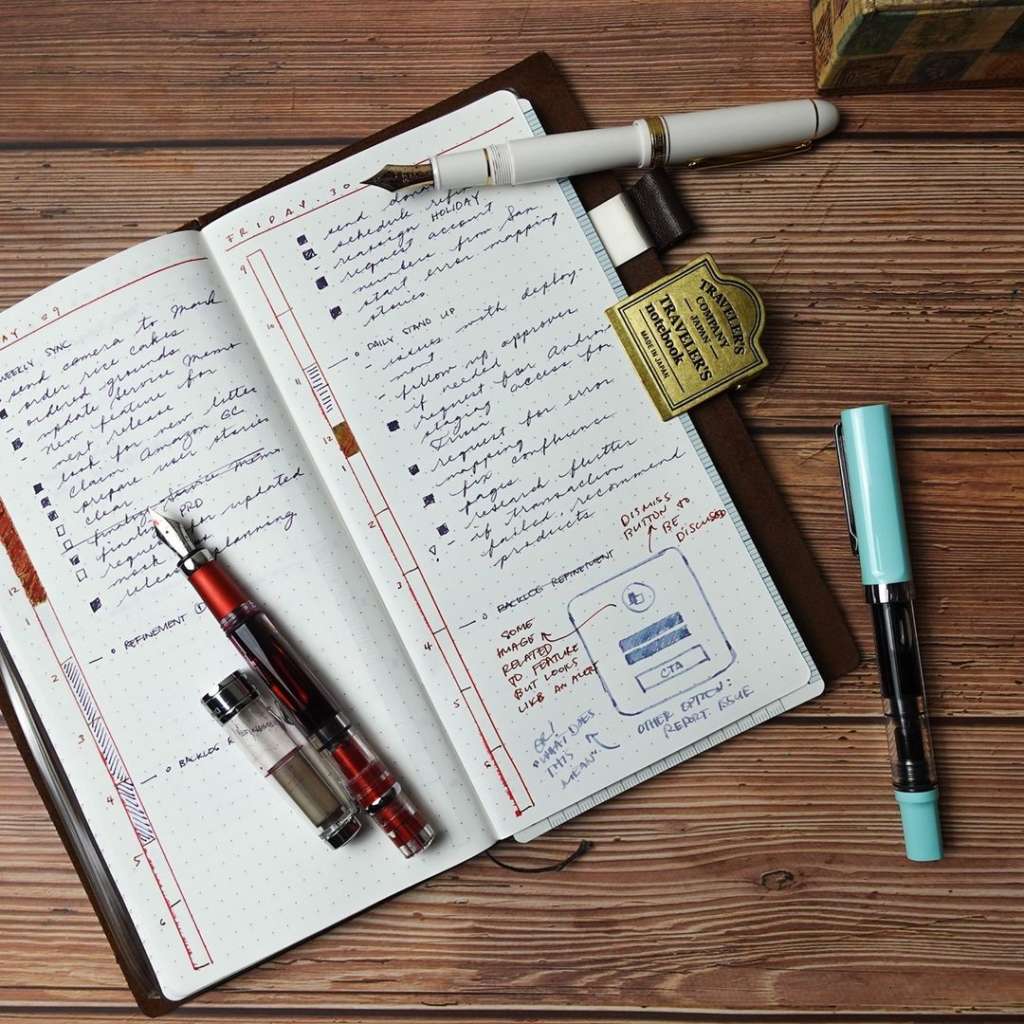 AY. 29
WEEKLY SYNC
send camera to Mark
order rice cakes
ordered grounds
update Service Memo
new feature for
next release
look for new letter
claim Amazon GC
prepare user stories
clear
Service Memo
PRD
updated
planning
REFINEMENT
BACKLOG R
12
1
2
3
4
5
6
FRIDAY. 30
send
schedule
HOLIDAY
reassign
request account
numbers from San
start error mapping
stories
DAILY STAND UP
issues with deploy-
ment
follow up approver
if needed
request for
staging access for
request for error
mapping
fix confluence
pages
research
if transaction
failed, recommend
products
BACKLOG REFINEMENT
9
10
11
12
1
2
3
4
5
6
DISMISS
BUTTON TO
BE
DISCUSSED
SOME
IMAGE
RELATED
TO FEATURE
BUT LOOKS
LIKE AN ALERT
CTA
OTHER OPTION:
REPORT ISSUE
WHAT DOES
THIS
MEAN
TRAVELER'S
COMPANY
JAPAN
TRAVELER'S
notebook
MADE IN JAPAN